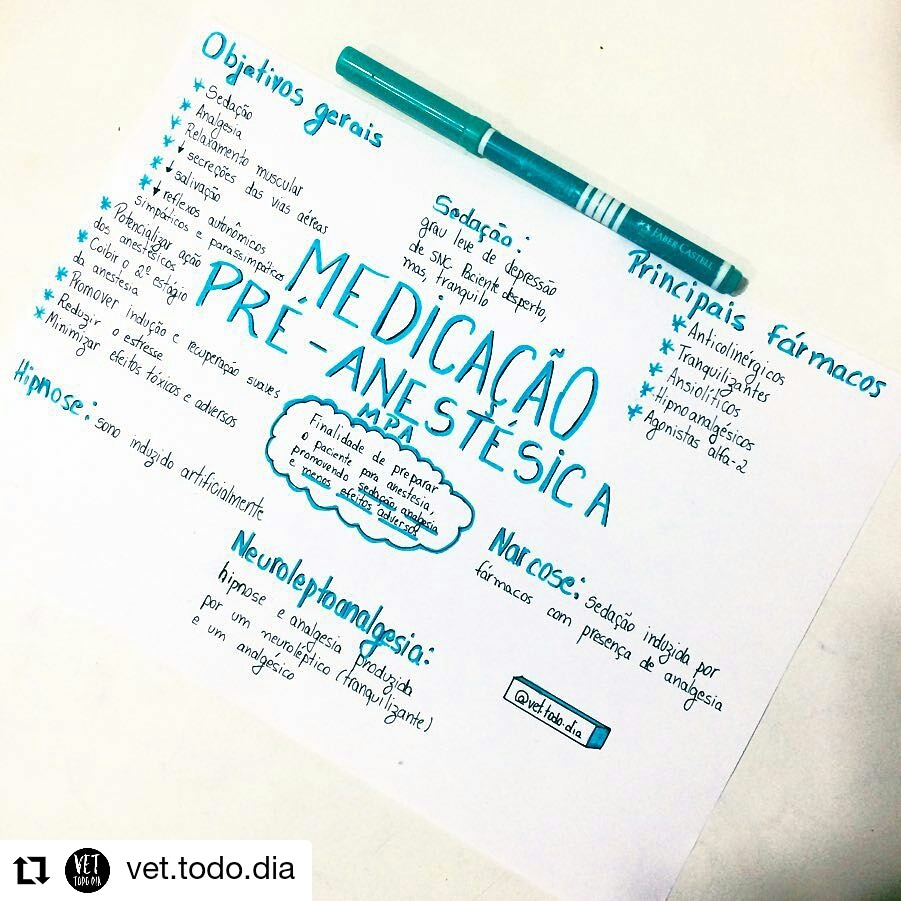 Objetivos gerais
* Sedação
* Analgesia
* Relaxamento muscular
* ↓ secreções das vias aéreas
* ↓ salivação
* ↓ reflexos autonômicos
simpáticos e parassimpáticos
* Potencializar ação
dos anestésicos
* Coibir o 2º estágio
da anestesia
* Promover indução e recuperação suaves
* Reduzir o estresse
* Minimizar efeitos tóxicos e adversos
Sedação:
grau leve de depressão
de SNC. Paciente desperto,
mas, tranquilo
FABER CASTELL
Principais fármacos
* Anticolinérgicos
* Tranquilizantes
* Ansiolíticos
* Hipnoanalgésicos
* Agonistas alfa-2
MEDICAÇÃO
PRÉ-ANESTÉSICA
MPA
Finalidade de preparar
o paciente para anestesia,
promovendo sedação, analgesia
e menos efeitos adversos
Hipnose: sono induzido artificialmente
Neuroleptoanalgesia:
hipnose e analgesia produzida
por um neuroléptico (tranquilizante)
e um analgésico
Narcose: sedação induzida por
fármacos com presença de analgesia
@vet.todo.dia
VET
TODO DIA
vet.todo.dia